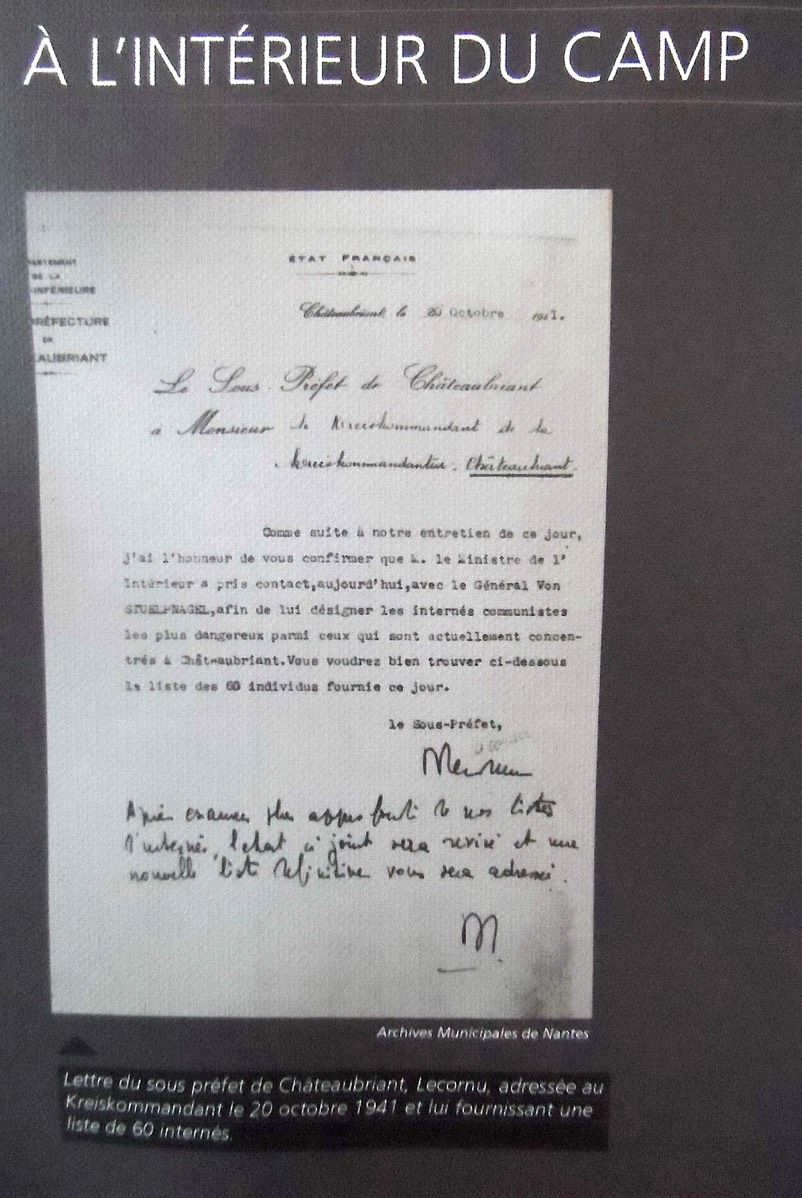 À L'INTÉRIEUR DU CAMP
ARTEMENT
DE LA
-INFÉRIEURE
RÉFECTURE
DE
AUBRIANT
ÉTAT FRANÇAIS
Châteaubriant, le 20 Octobre 1941.
Le Sous-Préfet de Châteaubriant
à Monsieur le Kreiskommandant de la
Kreiskommandantur. Châteaubriant.
Comme suite à notre entretien de ce jour,
j'ai l'honneur de vous confirmer que M. le Ministre de l'
Intérieur a pris contact,aujourd'hui,avec le Général Von
STUELPNAGEL,afin de lui désigner les internés communistes
les plus dangereux parmi ceux qui sont actuellement concen-
trés à Châteaubriant.Vous voudrez bien trouver ci-dessous
la liste des 60 individus fournie ce jour.
le Sous-Préfet,
Après examen plus approfondi de nos listes
d'internés, l'état ci joint sera revisé et une
nouvelle liste définitive vous sera adressée.
M.
Archives Municipales de Nantes
Lettre du sous préfet de Châteaubriant, Lecornu, adressée au
Kreiskommandant le 20 octobre 1941 et lui fournissant une
liste de 60 internés.